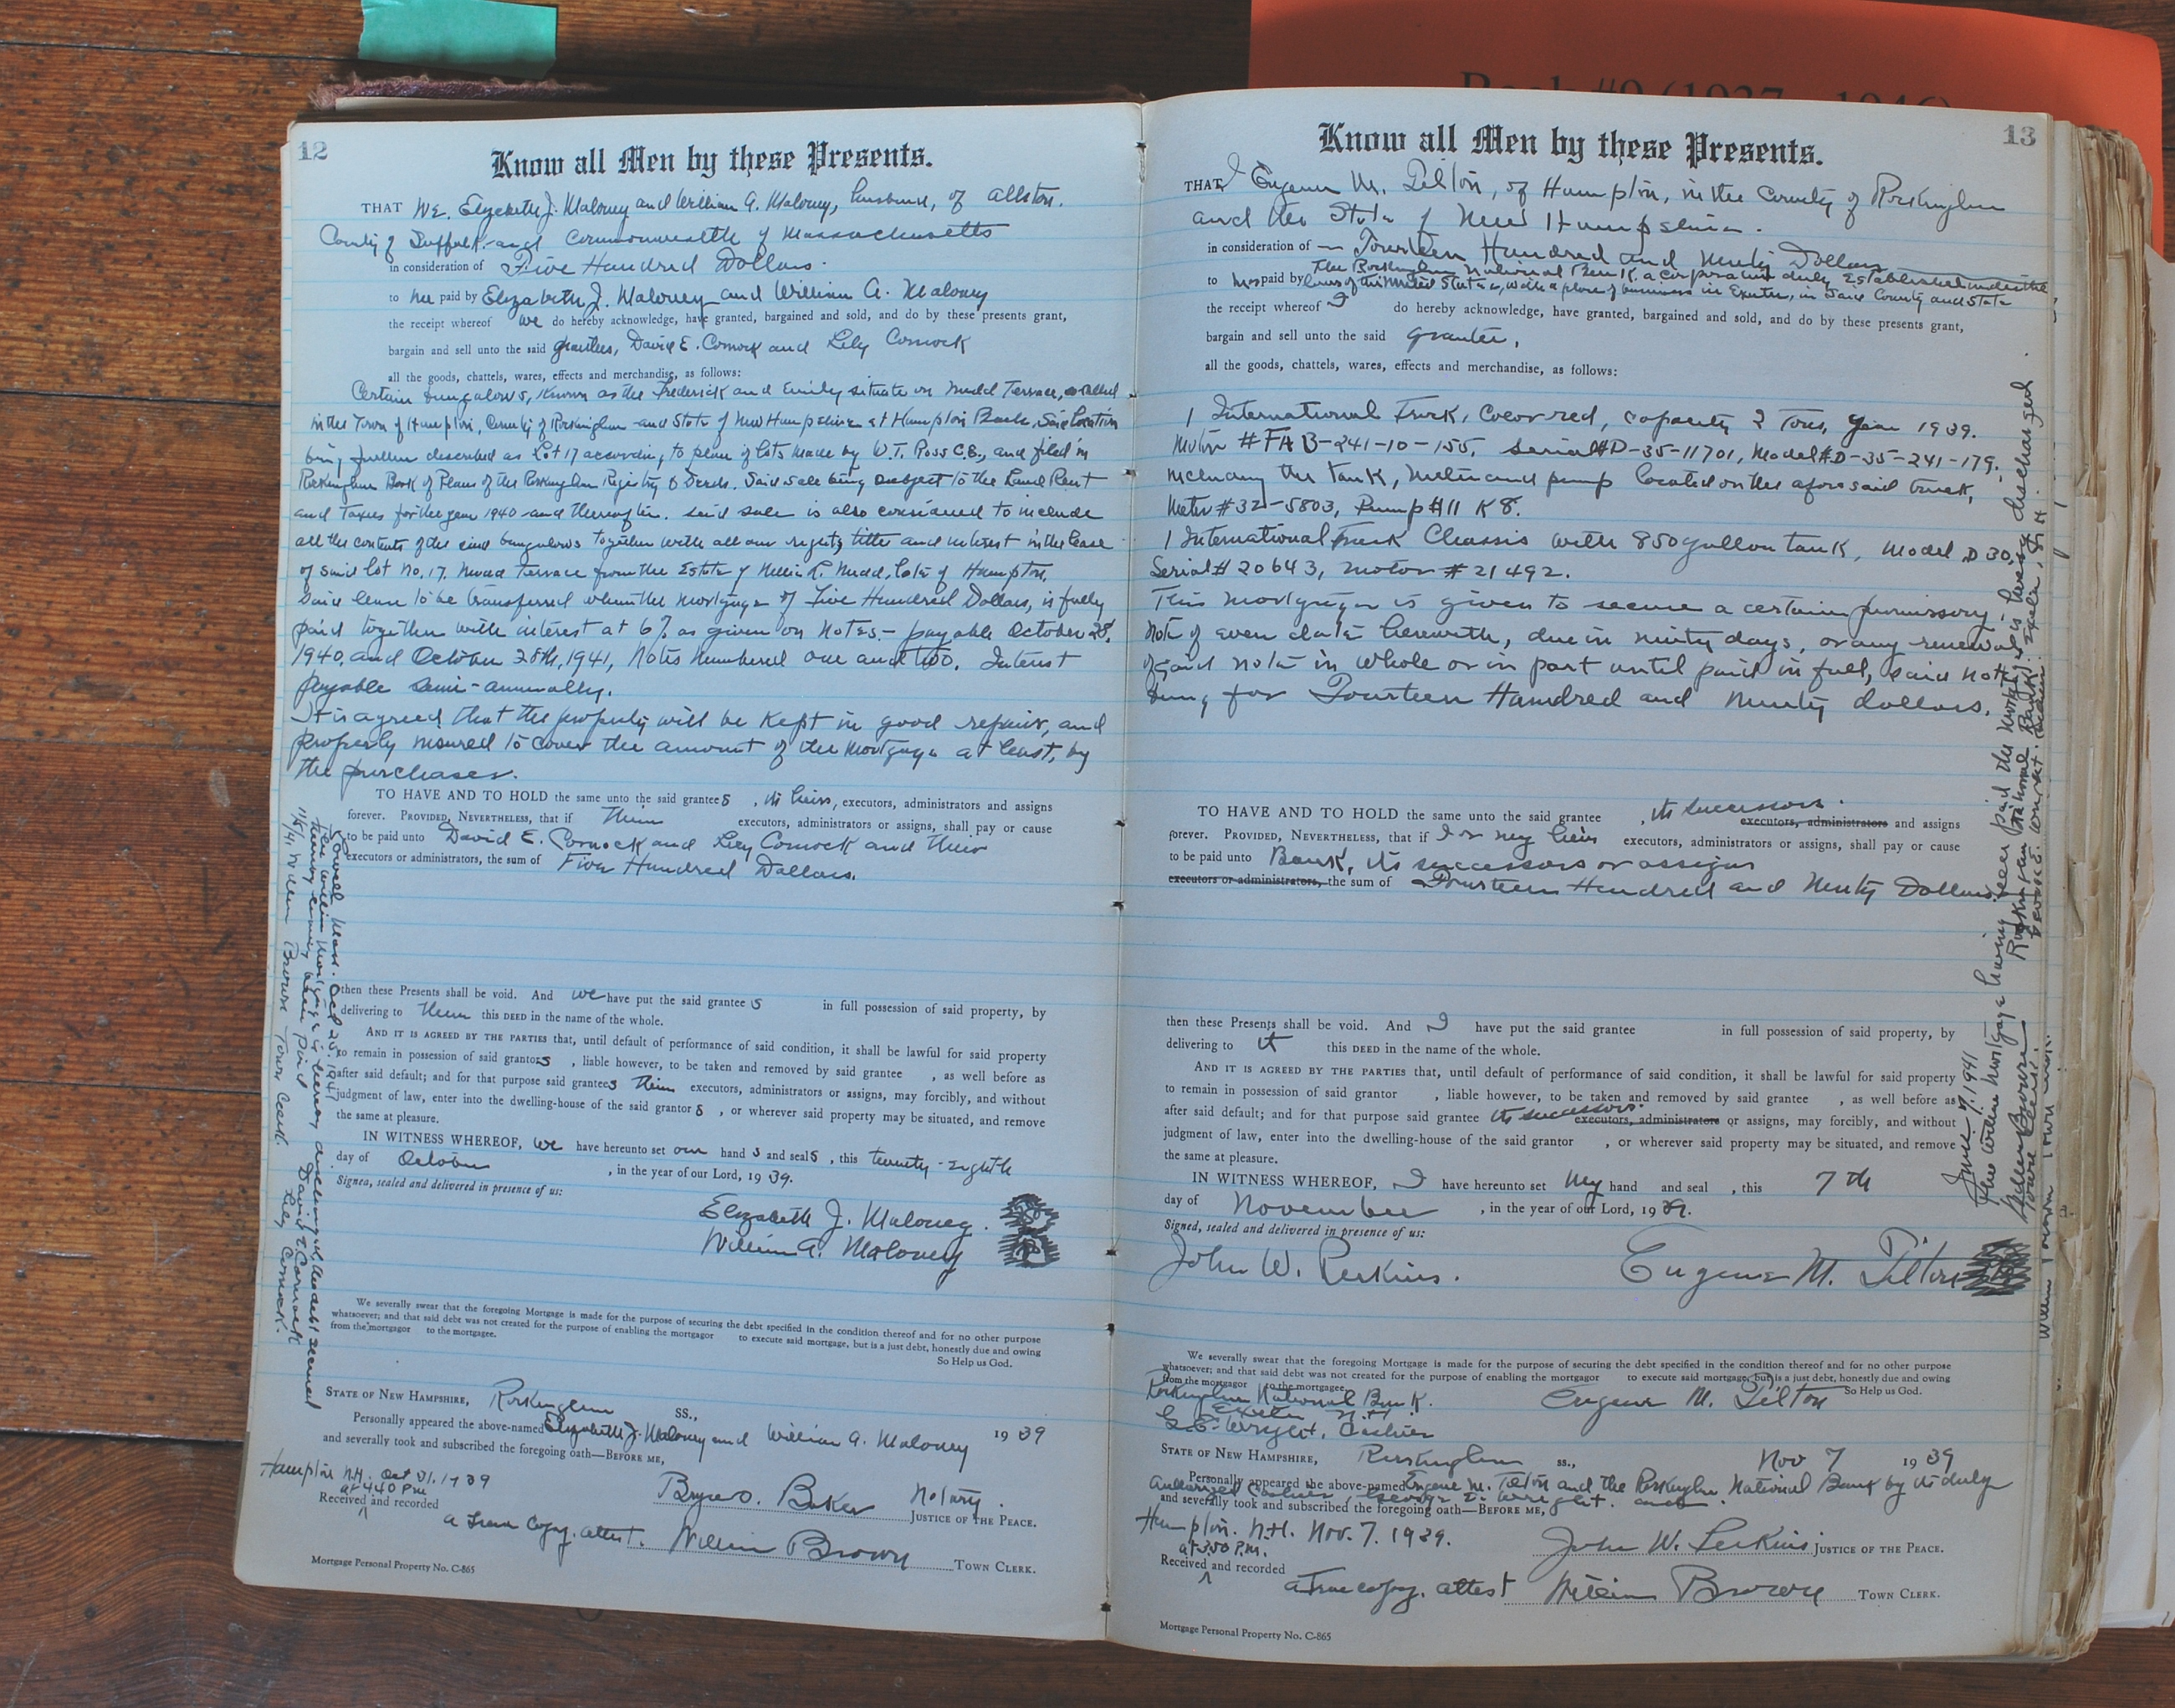 Book #9 (1937 - 1946)
12
Know all Men by these Presents.
THAT We, Elizabeth J. Maloney and William A. Maloney, husband, of Allston,
County of Suffolk and Commonwealth of Massachusetts
in consideration of Five Hundred Dollars.
to me paid by Elizabeth J. Maloney and William A. Maloney
the receipt whereof we do hereby acknowledge, have granted, bargained and sold, and do by these presents grant,
bargain and sell unto the said grantees, David E. Cornock and Lily Cornock
all the goods, chattels, wares, effects and merchandise, as follows:
Certain bungalows, known as the Frederick and Emily situate on Mudd Terrace, so called
in the Town of Hampton, County of Rockingham and State of New Hampshire at Hampton Beach, Said location
being further described as Lot 17 according to plan of lots made by W.T. Ross C.E., and filed in
Rockingham Book of Plans of the Rockingham Registry of Deeds. Said sale being subject to the Land Rent
and Taxes for the year 1940 and thereafter. Said sale is also considered to include
all the contents of the said bungalows together with all our right, title and interest in the lease
of said lot No. 17, Mudd Terrace from the Estate of Nellie K. Mudd, late of Hampton,
Said lease to be transferred when the mortgage of Five Hundred Dollars, is fully
paid together with interest at 6% as given on notes — payable October 28,
1940, and October 28th, 1941, Notes numbered one and two. Interest
payable semi-annually.
It is agreed that the property will be kept in good repair, and
properly insured to cover the amount of the mortgage at least, by
the purchaser.
TO HAVE AND TO HOLD the same unto the said grantees, its heirs, executors, administrators and assigns
forever. PROVIDED, NEVERTHELESS, that if their executors, administrators or assigns, shall pay or cause
to be paid unto David E. Cornock and Lily Cornock and their
executors or administrators, the sum of Five Hundred Dollars.
then these Presents shall be void. And we have put the said grantees in full possession of said property, by
delivering to them this DEED in the name of the whole.
AND IT IS AGREED BY THE PARTIES that, until default of performance of said condition, it shall be lawful for said property
to remain in possession of said grantors, liable however, to be taken and removed by said grantee, as well before as
after said default; and for that purpose said grantees their executors, administrators or assigns, may forcibly, and without
judgment of law, enter into the dwelling-house of the said grantors, or wherever said property may be situated, and remove
the same at pleasure.
IN WITNESS WHEREOF, we have hereunto set our hands and seals, this twenty-eighth
day of October, in the year of our Lord, 1939.
Signed, sealed and delivered in presence of us:
Elizabeth J. Maloney.
William A. Maloney
We severally swear that the foregoing Mortgage is made for the purpose of securing the debt specified in the condition thereof and for no other purpose
whatsoever; and that said debt was not created for the purpose of enabling the mortgagor to execute said mortgage, but is a just debt, honestly due and owing
from the mortgagor to the mortgagee. So Help us God.
STATE OF NEW HAMPSHIRE, Rockingham SS.,
Personally appeared the above-named Elizabeth J. Maloney and William A. Maloney 1939
and severally took and subscribed the foregoing oath—BEFORE ME,
Hampton N.H. Oct 31, 1939
at 4.40 P.M.
Baker Notary.
JUSTICE OF THE PEACE.
Received and recorded
a true copy, attest. William Brown TOWN CLERK.
Mortgage Personal Property No. C-865
Lowell Mass. Oct 25, 1941
The within Mortgage is hereby discharged, the debt secured
thereby having been paid David E. Cornock
Lily Cornock.
William Brown Town Clerk.
13
Know all Men by these Presents.
THAT I Eugene M. Tilton, of Hampton, in the County of Rockingham
and the State of New Hampshire.
in consideration of — Fourteen Hundred and Ninety Dollars
to me paid by The Rockingham National Bank, a corporation duly established under the
laws of the United States, with a place of business in Exeter, in said County and State
the receipt whereof I do hereby acknowledge, have granted, bargained and sold, and do by these presents grant,
bargain and sell unto the said grantee,
all the goods, chattels, wares, effects and merchandise, as follows:
1 International Truck, Color red, capacity 2 Tons, Year 1939.
Motor # FAB-241-10-155, Serial #D-35-11701, Model #D-35-241-179,
including the tank, meter and pump located on the aforesaid truck,
Meter # 32-5803, Pump #11 K8.
1 International Truck Chassis with 850 gallon tank, Model D 30,
Serial # 20643, motor # 21492.
This mortgage is given to secure a certain promissory
note of even date herewith, due in ninety days, or any renewal
of said note in whole or in part until paid in full, said note
being for Fourteen Hundred and Ninety dollars.
TO HAVE AND TO HOLD the same unto the said grantee, its successors executors, administrators and assigns
forever. PROVIDED, NEVERTHELESS, that if I or my heirs executors, administrators or assigns, shall pay or cause
to be paid unto Bank, its successors or assigns
executors or administrators, the sum of Fourteen Hundred and Ninety Dollars
then these Presents shall be void. And I have put the said grantee in full possession of said property, by
delivering to it this DEED in the name of the whole.
AND IT IS AGREED BY THE PARTIES that, until default of performance of said condition, it shall be lawful for said property
to remain in possession of said grantor, liable however, to be taken and removed by said grantee, as well before as
after said default; and for that purpose said grantee its successors executors, administrators or assigns, may forcibly, and without
judgment of law, enter into the dwelling-house of the said grantor, or wherever said property may be situated, and remove
the same at pleasure.
IN WITNESS WHEREOF, I have hereunto set my hand and seal, this 7th
day of November, in the year of our Lord, 1939.
Signed, sealed and delivered in presence of us:
John W. Perkins. Eugene M. Tilton
We severally swear that the foregoing Mortgage is made for the purpose of securing the debt specified in the condition thereof and for no other purpose
whatsoever; and that said debt was not created for the purpose of enabling the mortgagor to execute said mortgage, but is a just debt, honestly due and owing
from the mortgagor to the mortgagee. So Help us God.
Rockingham National Bank. Eugene M. Tilton
Exeter N.H.
G.E. Wright, Cashier
STATE OF NEW HAMPSHIRE, Rockingham ss., Nov 7 1939
Personally appeared the above-named Eugene M. Tilton and the Rockingham National Bank by its duly
authorized Cashier, George E. Wright. and
and severally took and subscribed the foregoing oath—BEFORE ME,
Hampton. N.H. Nov. 7. 1939.
at 3.50 P.M.
John W. Perkins JUSTICE OF THE PEACE.
Received and recorded
a True copy. attest William Brown TOWN CLERK.
Mortgage Personal Property No. C-865
June 7, 1941
The within mortgage having been paid the same is hereby discharged.
Rockingham National Bank. Exeter, N.H.
George E. Wright. Cashier.
William Brown
Town Clerk.